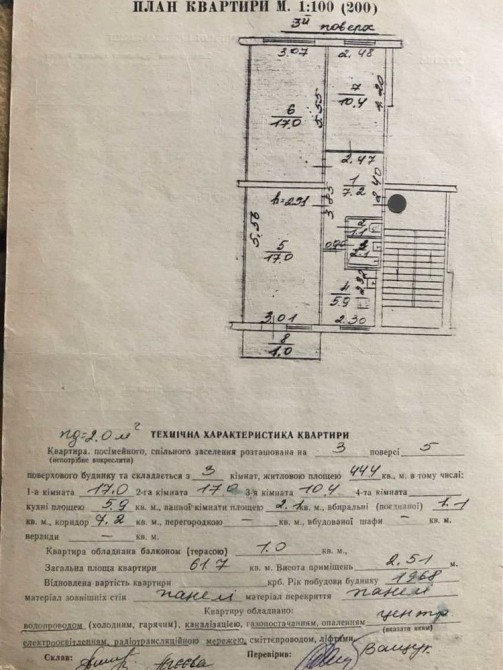 ПЛАН КВАРТИРИ М. 1:100 (200)
3й поверх
3.07 2.48
6
17.0
5.55
7
10.4
4.20
2.47
1
7.2
h=2.51
3.85
2.40
5.56
5
17.0
2
1.1
4
5.9
3.01
2.30
8
1.0
пд=2.0 м²
ТЕХНІЧНА ХАРАКТЕРИСТИКА КВАРТИРИ
Квартира, посімейного, спільного заселення розташована на 3 поверсі 5
(непотрібне викреслити)
поверхового будинку та складається з 3 кімнат, житловою площею 44.4 кв., м. в тому числі:
1-а кімната 17.0 2-га кімната 17.0 3-я кімната 10.4 4-та кімната
кухні площею 5.9 кв. м., ванної кімнати площею 2.1 кв. м., вбиральні (поєднаної) 1.1
кв. м., коридор 7.2 кв. м., перегородкою — кв. м., вбудованої шафи — кв. м.
веранди — кв. м.
Квартира обладнана балконом (терасою) 1.0 кв. м.,
Загальна площа квартири 61.7 кв. м. Висота приміщень 2.51 м.
Відновлена вартість квартири крб. Рік побудови будинку 1968
матеріал зовнішніх стін панелі матеріал перекриття панелі
Квартиру обладнано:
водопроводом (холодним, гарячим), каналізацією, газопостачанням, опаленням центр
(вказати яким)
електроосвітленням, радіотрансляційною мережею, сміттєпроводом, ліфтами.
Склав: Перевірив: